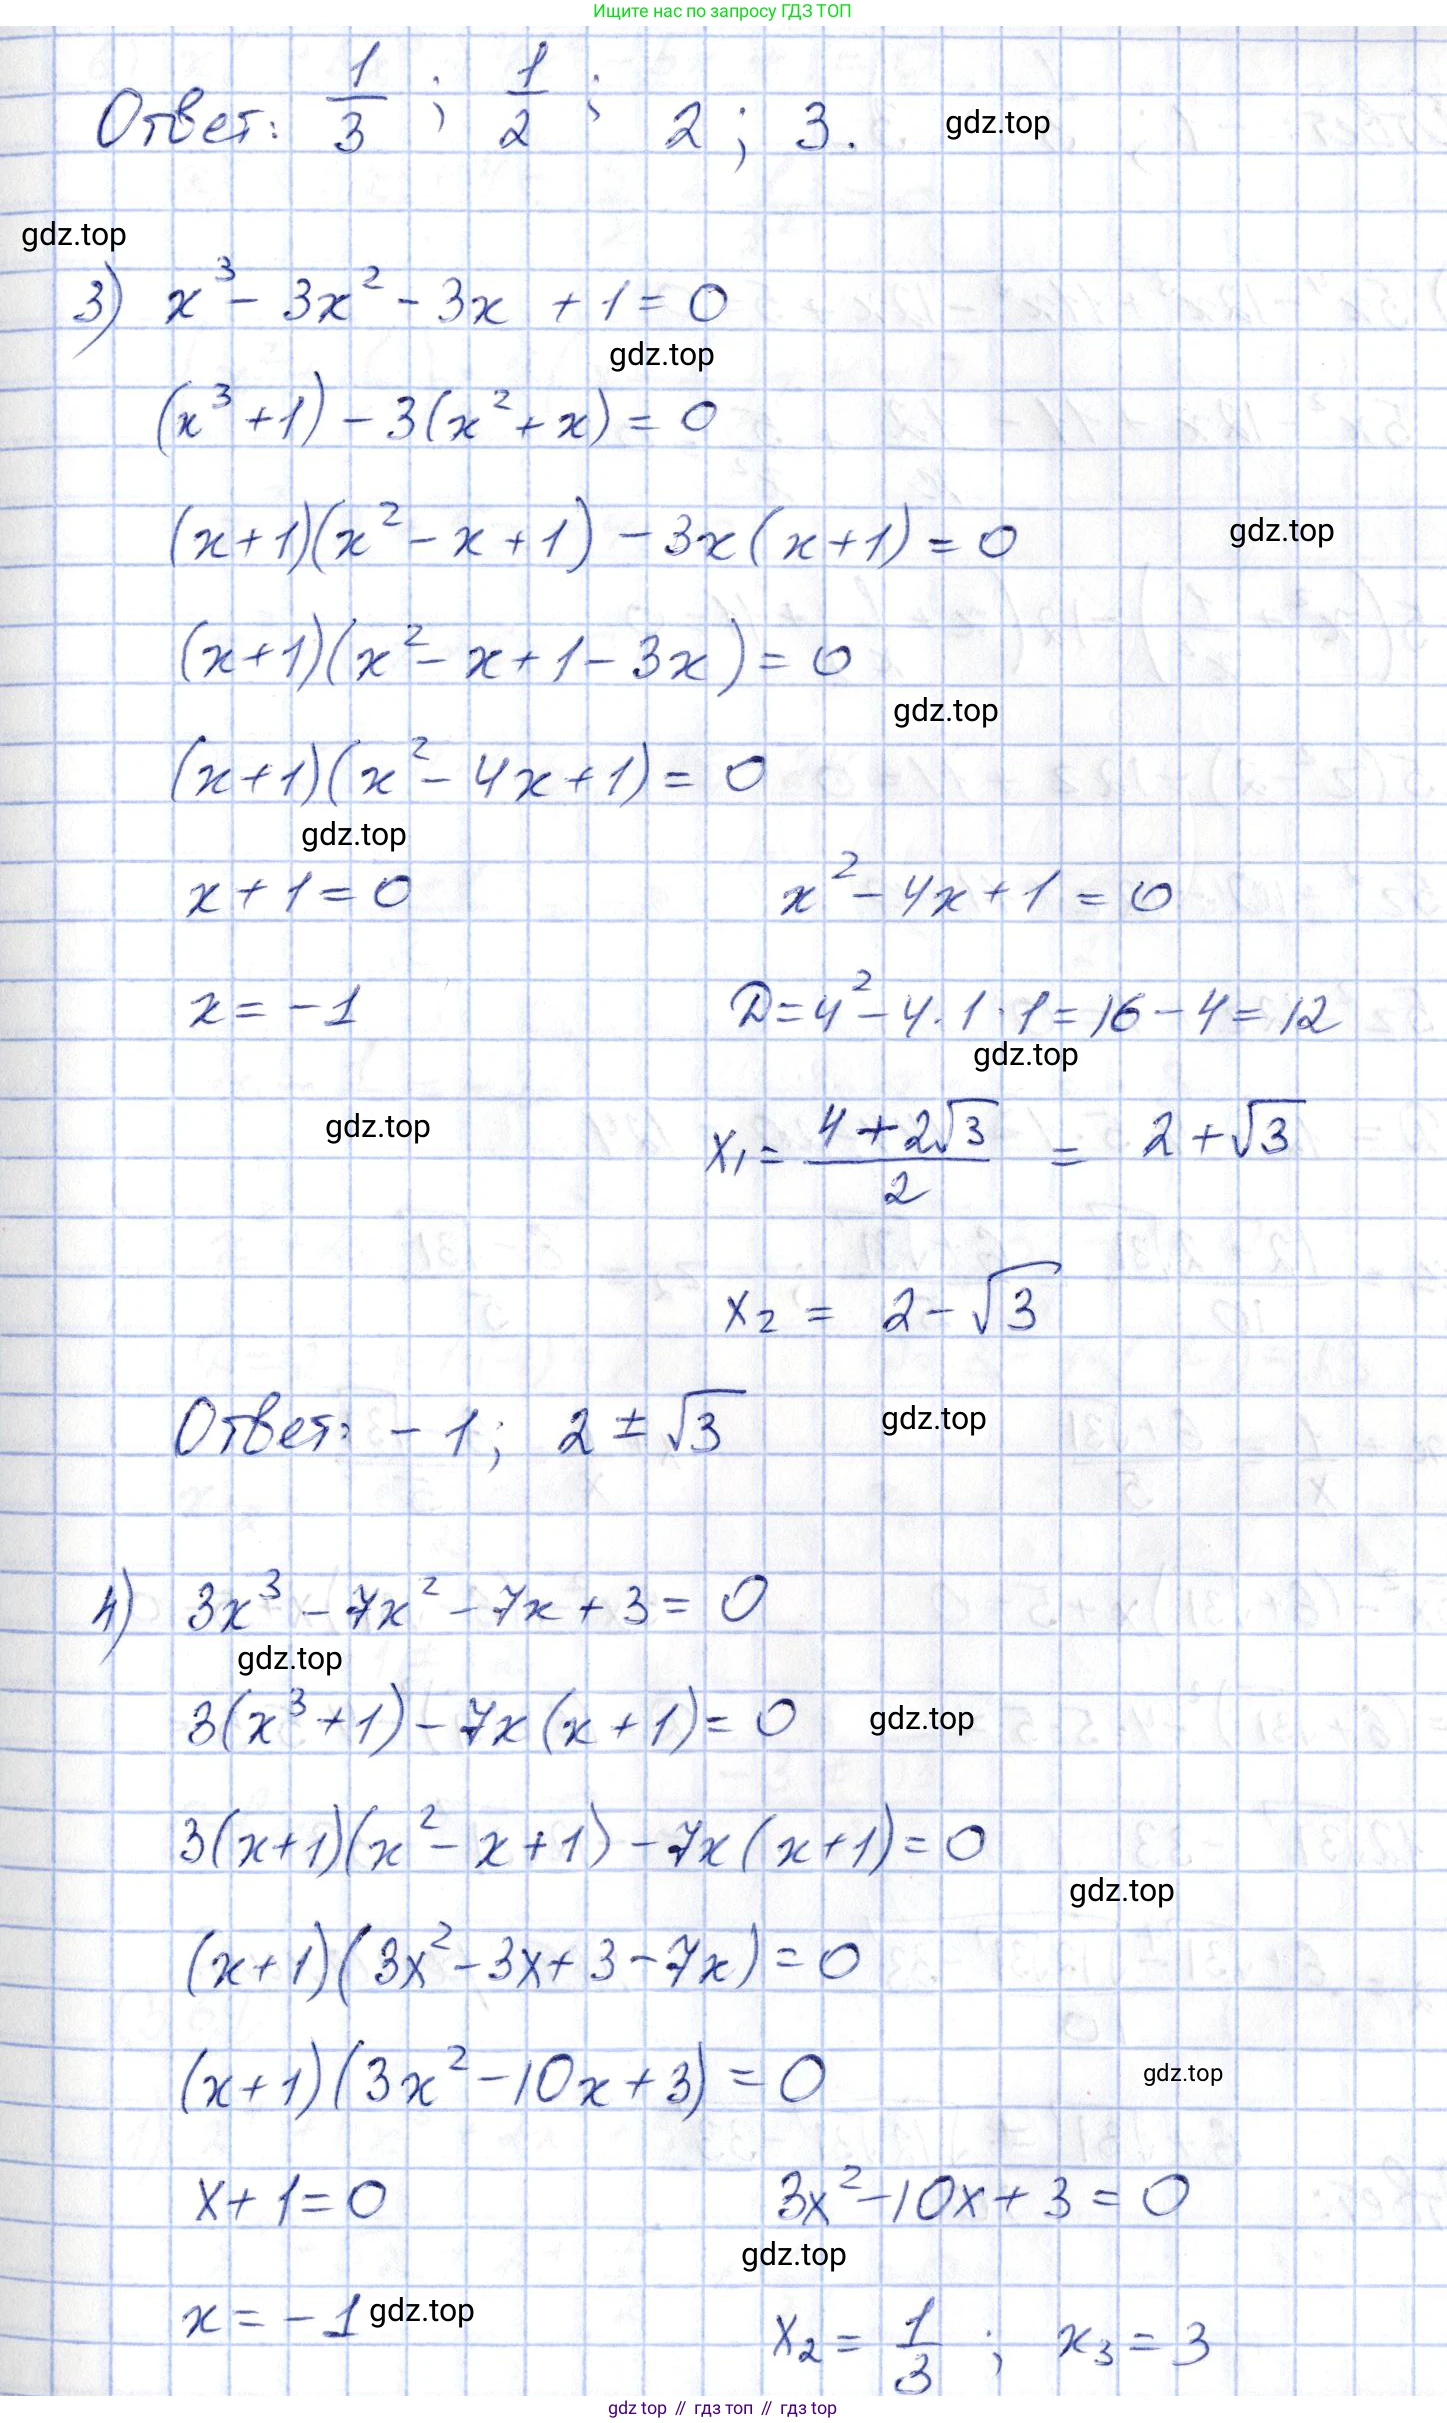 Ищите нас по запросу ГДЗ ТОП
Ответ: 1/3 ; 1/2 ; 2 ; 3.
gdz.top
gdz.top
3) x³ - 3x² - 3x + 1 = 0
gdz.top
(x³ + 1) - 3(x² + x) = 0
(x + 1)(x² - x + 1) - 3x(x + 1) = 0
gdz.top
(x + 1)(x² - x + 1 - 3x) = 0
gdz.top
(x + 1)(x² - 4x + 1) = 0
gdz.top
x + 1 = 0 x² - 4x + 1 = 0
x = -1 D = 4² - 4 · 1 · 1 = 16 - 4 = 12
gdz.top
gdz.top
x₁ = (4 + 2√3)/2 = 2 + √3
x₂ = 2 - √3
Ответ: -1; 2 ± √3
gdz.top
4) 3x³ - 7x² - 7x + 3 = 0
gdz.top
3(x³ + 1) - 7x(x + 1) = 0
gdz.top
3(x + 1)(x² - x + 1) - 7x(x + 1) = 0
gdz.top
(x + 1)(3x² - 3x + 3 - 7x) = 0
(x + 1)(3x² - 10x + 3) = 0
gdz.top
x + 1 = 0 3x² - 10x + 3 = 0
gdz.top
x = -1 gdz.top x₂ = 1/3 ; x₃ = 3
gdz top // гдз топ // gdz top